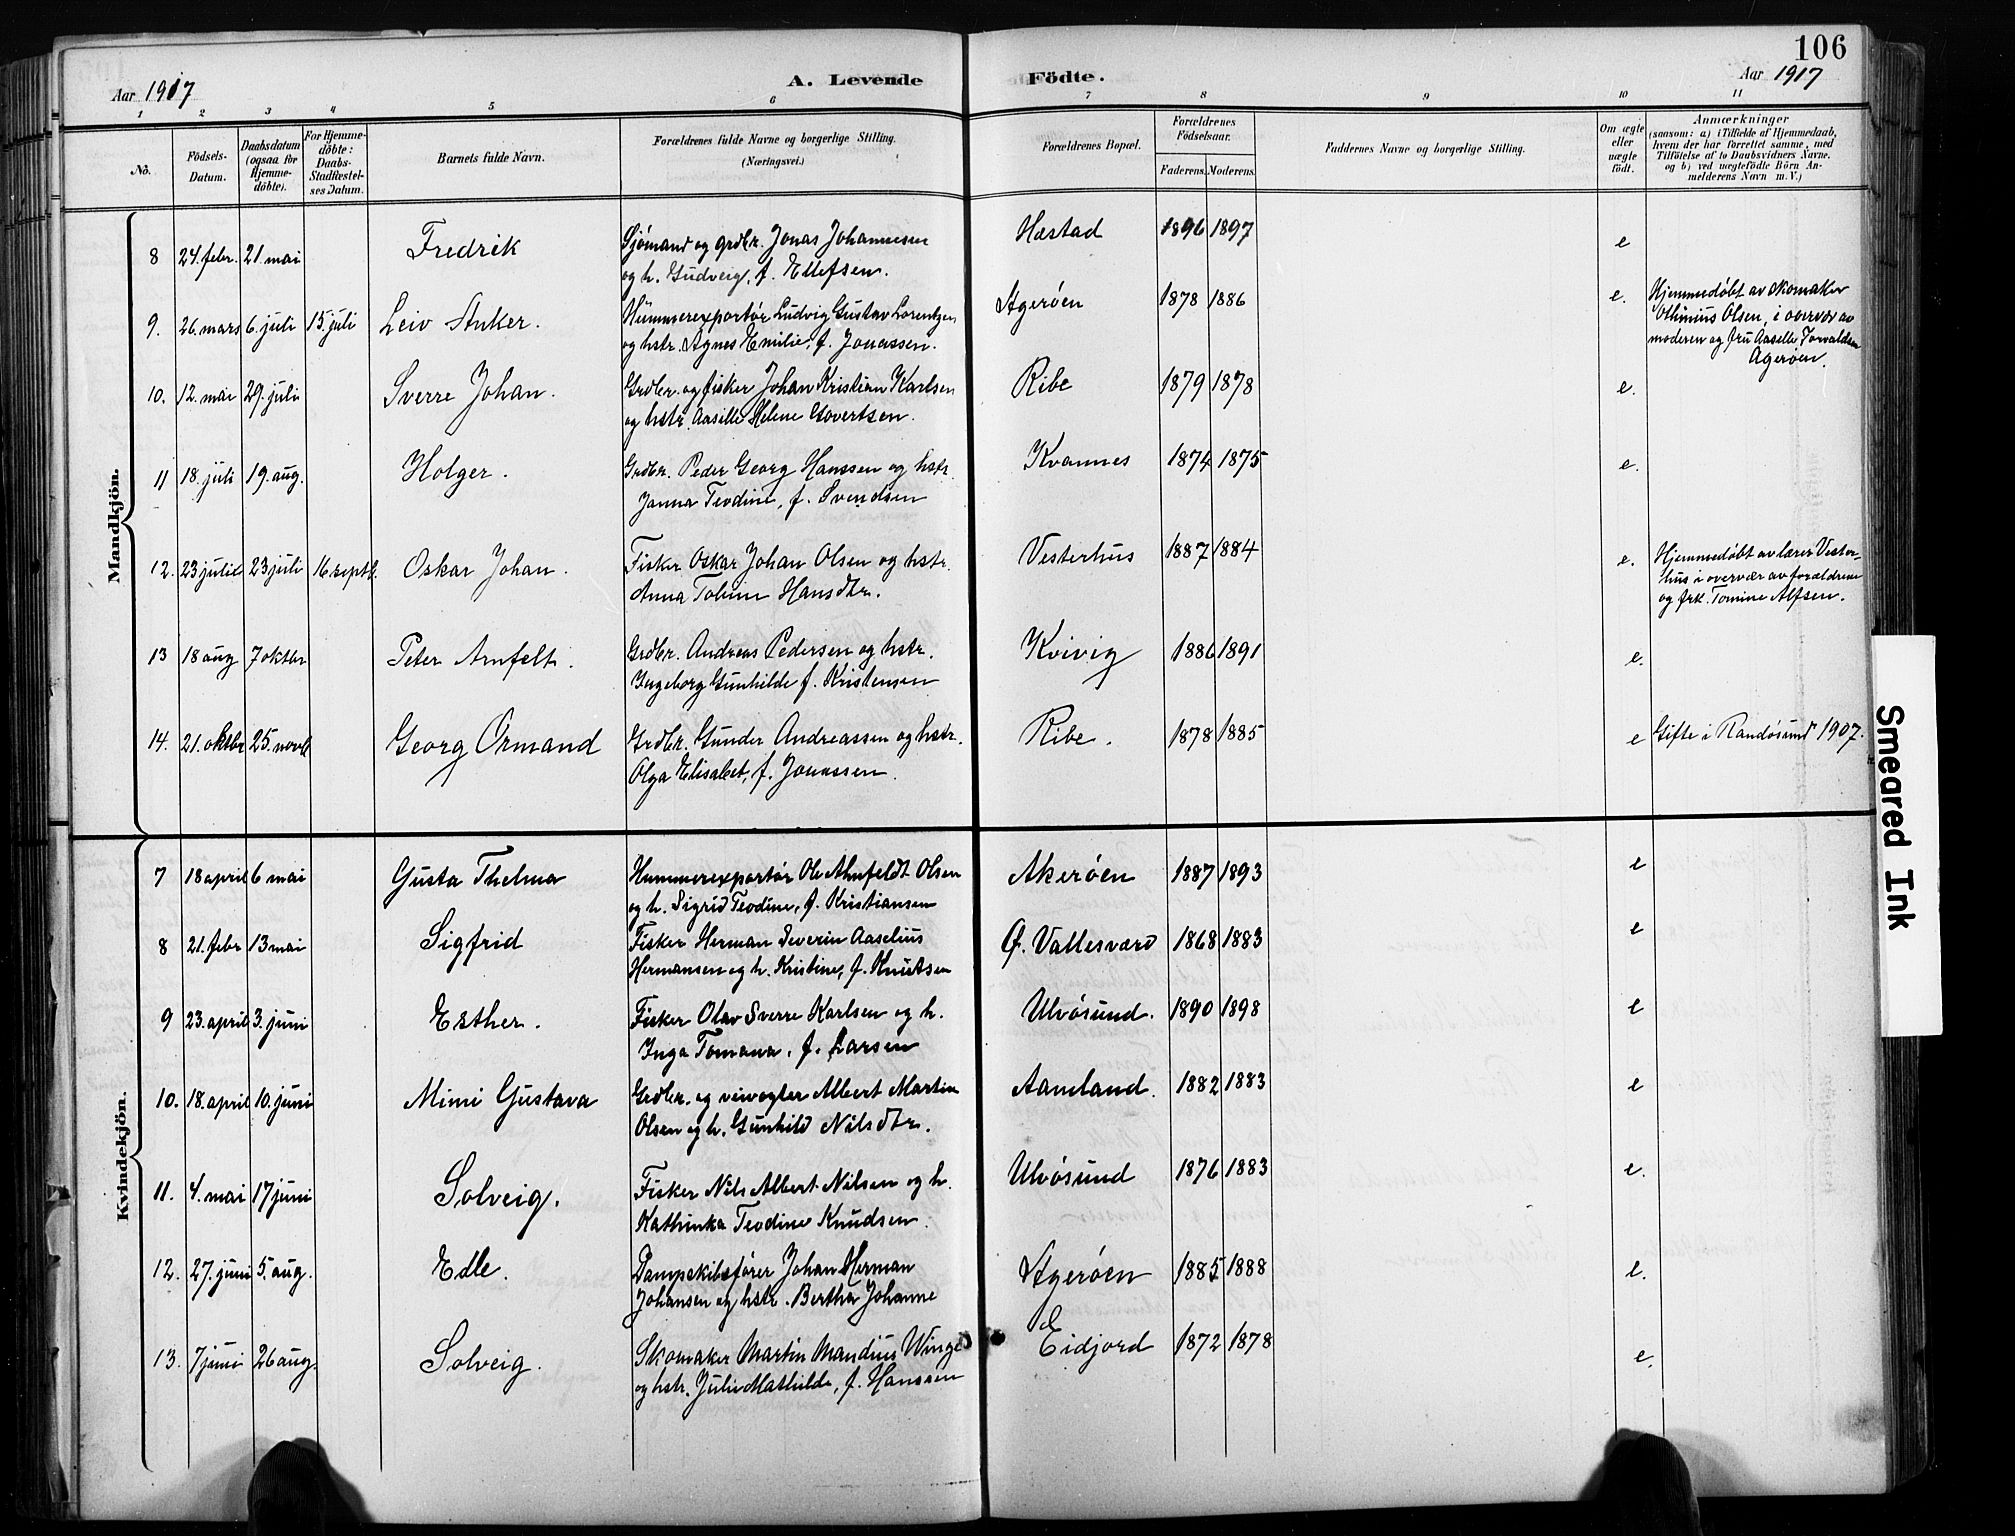 106
Aar 1917
A. Levende Födte.
Aar 1917
1 2 3 4 5 6 7 8 9 10 11
No.
Födsels-Datum.
Daabsdatum (ogsaa for Hjemme-döbte).
For Hjemme-döbte: Daabs-Stadfestel-ses Datum.
Barnets fulde Navn.
Forældrenes fulde Navne og borgerlige Stilling.
(Næringsvei.)
Forældrenes Bopæl.
Forældrenes Födselsaar.
Faderens. Moderens.
Faddernes Navne og borgerlige Stilling.
Om ægte eller uægte födt.
Anmærkninger
(saasom: a) i Tilfælde af Hjemmedaab, hvem der har forrettet samme, med Tilföielse af to Daabsvidners Navne, og b) ved uægtefödte Börn An-melderens Navn m. V.)
Mandkjön.
8 24. febr. 21. mai Fredrik Sjømand og grdbr. Jonas Johannesen Hæstad 1896 1897 e
og h. Gudveig, f. Ellefsen.
9. 26. mars 6. juli 15. juli Leiv Anker. Hummerexportør Ludvig Gustav Lorentzen Agerøen 1878 1886 e. Hjemmedøbt av skomaker
og hstr. Agnes Emilie, f. Jonassen. Othinius Olsen, i overvær av
moderen og fru Aaselle Torvaldsen
Agerøen.
10. 12. mai 29. juli Sverre Johan. Grdbr. og fisker Johan Kristian Karlsen Ribe 1879 1878 e.
og hstr. Aasille Helene Govertsen.
11 18. juli 19. aug. Holger. Grdbr. Peder Georg Hanssen og hstr. Kvannes 1874 1875 e.
Janna Teodine, f. Svendsen
12. 23 julil 23 juli 16 septb. Oskar Johan. Fisker Oskar Johan Olsen og hstr. Vesterhus 1887 1884 e. Hjemmedøbt av lærer Vester-
Anna Tobine Hansdtr. hus i overvær av forældrene
og frk. Tomine Alfsen.
13 18 aug 7 oktbr Peter Arnfelt. Grdbr. Andreas Pedersen og hstr. Kvivig 1886 1891 e.
Ingeborg Gunhilde f. Kristensen
14. 21. oktbr 25. novb Georg Ormand Grdbr. Gunder Andreassen og hstr. Ribe. 1878 1885 e Gifte i Randøsund 1907.
Olga Elisabet, f. Jonassen.
Kvindekjön.
7 18 april 6 mai Gusta Thelma Hummerexportør Ole Arnfeldt Olsen Akerøen 1887 1893 e
og h. Sigrid Teodine, f. Kristiansen
8 21. febr 13 mai Sigfrid Fisker Herman Severin Aaselius Ø. Vallesværd 1868 1883 e
Hermansen og h. Kristine, f. Knutsen
9 23. april 3. juni Esther. Fisker Olav Sverre Karlsen og h. Ulvøsund. 1890 1898 e
Inga Tomana, f. Larsen
10. 18. april 10. juni Mimi Gustava Grdbr. og veivogter Albert Martin Aamland. 1882 1883 e
Olsen og h. Gunhild Nilsdtr.
11. 4. mai 17 juni Solveig. Fisker Nils Albert Nilsen og h. Ulvøsund 1876 1883 e.
Kathinka Teodine Knudsen.
12. 27. juni 5. aug. Edle. Dampskibsfører Johan Herman Agerøen 1885 1888 e.
Johansen og hstr. Bertha Johanne
13. 7 juni 26 aug. Solveig. Skomaker Martin Mandius Winge Eidjord 1872 1878 e.
og hstr. Julie Mathilde, f. Hanssen
Smeared Ink